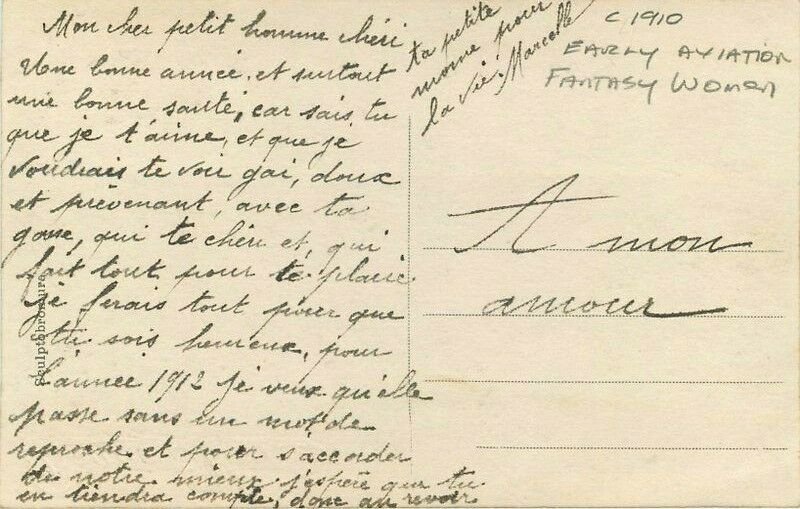 Mon cher petit homme chéri
Une bonne année, et surtout
une bonne santé, car sais tu
que je t'aime, et que je
voudrais te voir gai, doux
et prévenant, avec ta
gosse, qui te chéri et, qui
fait tout pour te plaire
je ferais tout pour que
tu sois heureux, pour
l'année 1912 je veux qu'elle
passe sans un mot de
reproche et pour s'accorder
de notre mieux j'espère que tu
en tiendra compte, donc au revoir
ta petite
mome pour
la vie. Marcelle
C 1910
EARLY AVIATION
FANTASY WOMEN
A mon
amour
Sculptobromure